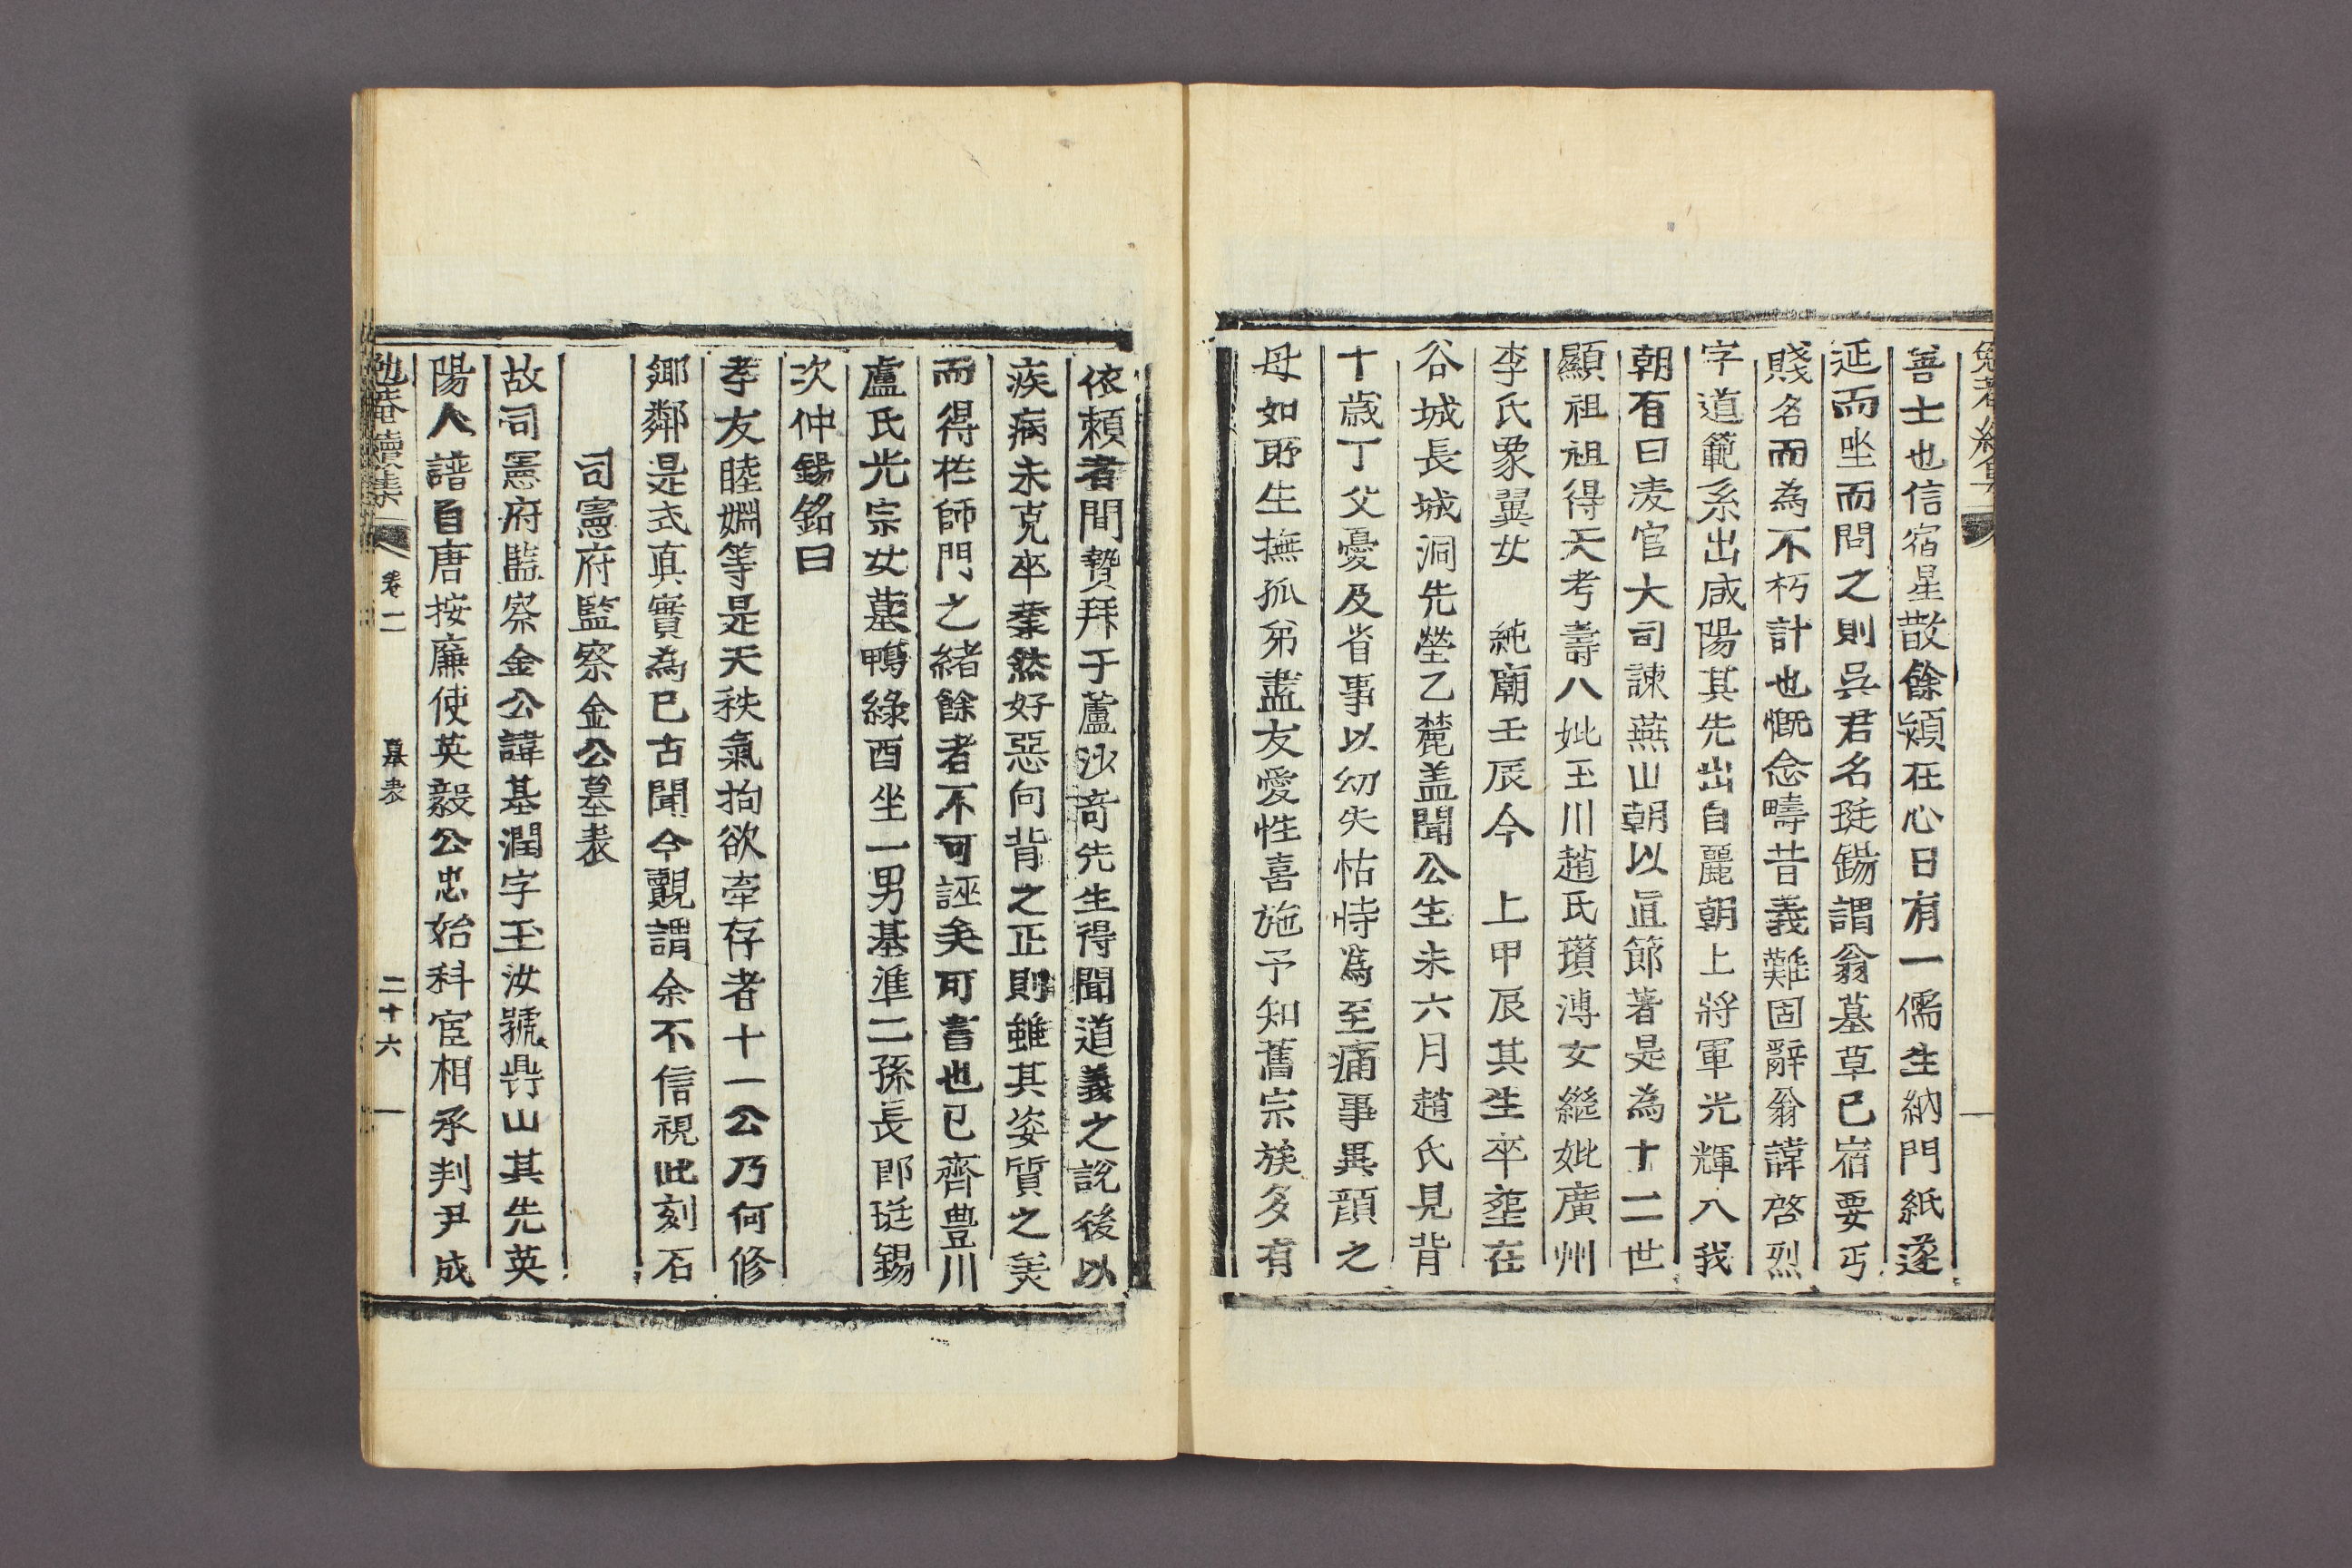 善士也信宿星散餘潁在心日有一儒生納門紙遂
延而坐而問之則吳君名珽錫謂翁墓草已宿要丐
賤名而為不朽計也慨念疇昔義難固辭翁諱啓烈
字道範系出咸陽其先出自麗朝上將軍光輝入我
朝有曰凌官大司諫燕山朝以直節著是為十二世
顯祖祖得天考壽八妣玉川趙氏瓚溥女繼妣廣州
李氏象翼女　純廟壬辰今　上甲辰其生卒塟在
谷城長城洞先塋乙麓盖聞公生未六月趙氏見背
十歲丁父憂及省事以幼失怙恃爲至痛事異顔之
母如所生撫孤弟盡友愛性喜施予知舊宗族多有
依賴者間贄拜于蘆沙奇先生得聞道義之說後以
疾病未克卒業然好惡向背之正則雖其姿質之美
而得於師門之緖餘者不可誣矣可書也已齊豊川
盧氏光宗女墓鴨綠酉坐一男基準二孫長卽珽錫
次仲錫銘曰
孝友睦婣等是天秩氣拘欲牽存者十一公乃何修
鄕鄰是式眞實為已古聞今覿謂余不信視此刻石
司憲府監察金公墓表
故司憲府監察金公諱基潤字玉汝號鼎山其先英
陽人譜自唐按廉使英毅公忠始科宦相承判尹成
勉菴續集　卷二　墓表　二十六